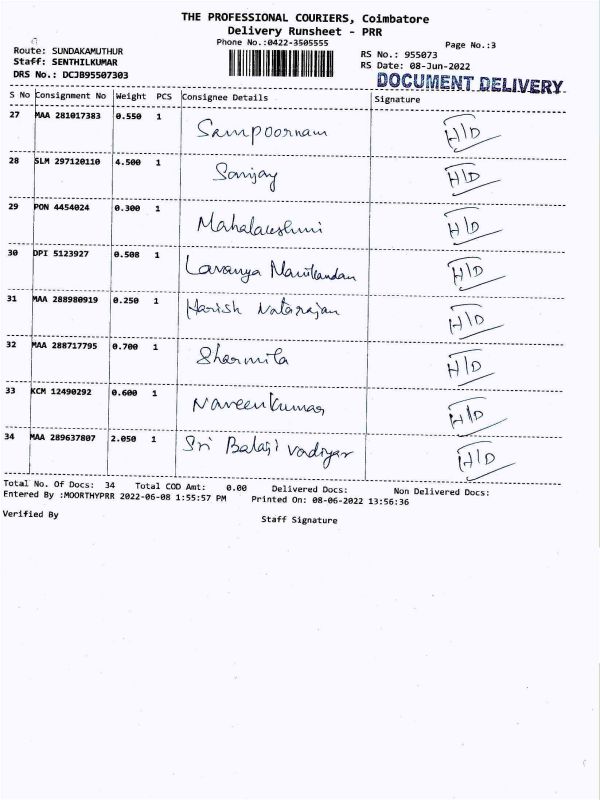 THE PROFESSIONAL COURIERS, Coimbatore
Delivery Runsheet - PRR
Phone No.:0422-3505555
Page No.:3
Route: SUNDAKAMUTHUR
Staff: SENTHILKUMAR
DRS No.: DCJB95507303
RS No.: 955073
RS Date: 08-Jun-2022
DOCUMENT DELIVERY
S No Consignment No Weight PCS Consignee Details Signature
27 MAA 281017383 0.550 1 Sampoornam H/D
28 SLM 297120110 4.500 1 Sanjay H/D
29 PON 4454024 0.300 1 Mahalakshmi H/D
30 DPI 5123927 0.508 1 Lavanya Manikandan H/D
31 MAA 288980919 0.250 1 Harish Natarajan H/D
32 MAA 288717795 0.700 1 Sharmila H/D
33 KCM 12490292 0.600 1 Naveenkumar H/D
34 MAA 289637807 2.050 1 Sri Balaji Vadiyar H/D
Total No. Of Docs: 34 Total COD Amt: 0.00 Delivered Docs: Non Delivered Docs:
Entered By :MOORTHYPRR 2022-06-08 1:55:57 PM Printed On: 08-06-2022 13:56:36
Verified By
Staff Signature